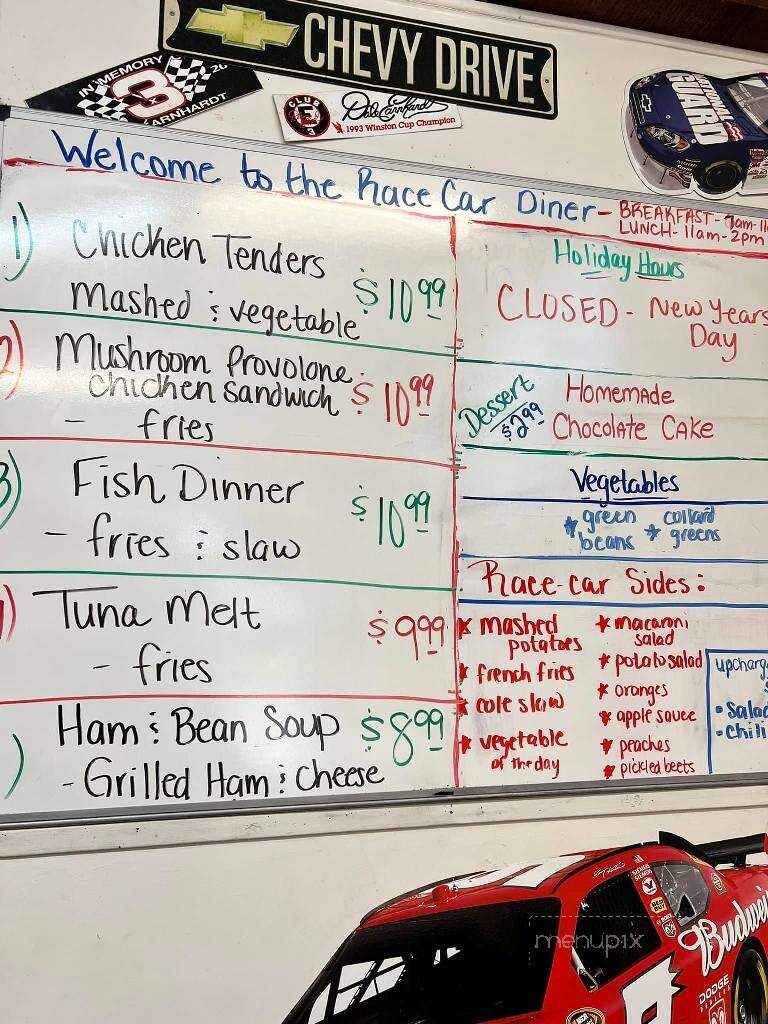 CHEVY DRIVE
IN MEMORY
3
EARNHARDT
CLUB
E3
Dale Earnhardt
1993 Winston Cup Champion
GUARD
Welcome to the Race Car Diner - BREAKFAST - 7am-11
LUNCH - 11am - 2pm
1) Chicken Tenders
Mashed & vegetable
$10.99
2) Mushroom Provolone
chicken sandwich
- fries
$10.99
3) Fish Dinner
- fries & slaw
$10.99
4) Tuna Melt
- fries
$9.99
) Ham & Bean Soup
- Grilled Ham & Cheese
$8.99
Holiday Hours
CLOSED - New Years
Day
Dessert
$2.99
Homemade
Chocolate Cake
Vegetables
* green
beans
* collard
greens
Race-car Sides:
* mashed
potatoes
* french fries
* cole slaw
* vegetable
of the day
* macaroni
salad
* potato salad
* oranges
* apple sauce
* peaches
* pickled beets
upcharg
• Salad
• Chili
menupix
Budweis
DODGE